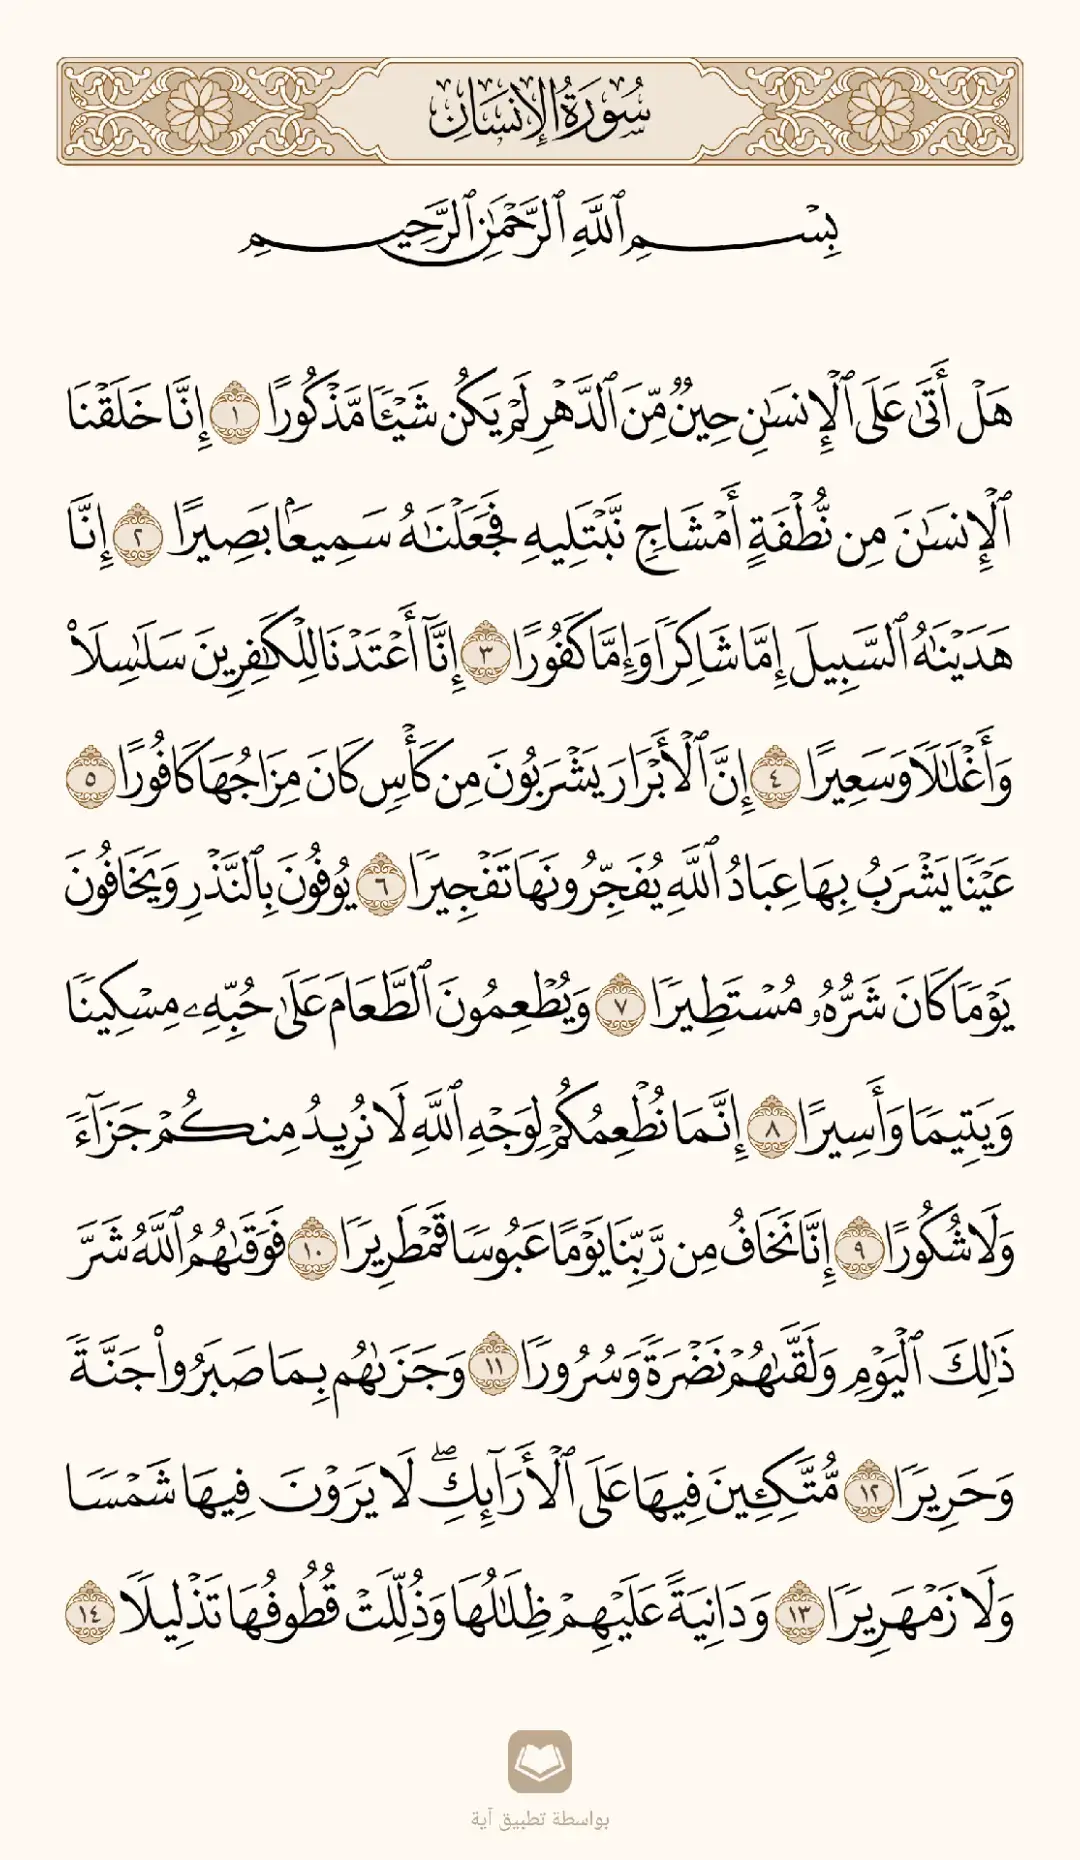 سُورَةُ الإِنسَانِ
بِسْمِ ٱللَّهِ ٱلرَّحْمَٰنِ ٱلرَّحِيمِ
هَلْ أَتَىٰ عَلَى ٱلْإِنسَٰنِ حِينٌ مِّنَ ٱلدَّهْرِ لَمْ يَكُن شَيْـًٔا مَّذْكُورًا ١ إِنَّا خَلَقْنَا
ٱلْإِنسَٰنَ مِن نُّطْفَةٍ أَمْشَاجٍ نَّبْتَلِيهِ فَجَعَلْنَٰهُ سَمِيعًۢا بَصِيرًا ٢ إِنَّا
هَدَيْنَٰهُ ٱلسَّبِيلَ إِمَّا شَاكِرًا وَإِمَّا كَفُورًا ٣ إِنَّآ أَعْتَدْنَا لِلْكَٰفِرِينَ سَلَٰسِلَا۟
وَأَغْلَٰلًا وَسَعِيرًا ٤ إِنَّ ٱلْأَبْرَارَ يَشْرَبُونَ مِن كَأْسٍ كَانَ مِزَاجُهَا كَافُورًا ٥
عَيْنًا يَشْرَبُ بِهَا عِبَادُ ٱللَّهِ يُفَجِّرُونَهَا تَفْجِيرًا ٦ يُوفُونَ بِٱلنَّذْرِ وَيَخَافُونَ
يَوْمًا كَانَ شَرُّهُۥ مُسْتَطِيرًا ٧ وَيُطْعِمُونَ ٱلطَّعَامَ عَلَىٰ حُبِّهِۦ مِسْكِينًا
وَيَتِيمًا وَأَسِيرًا ٨ إِنَّمَا نُطْعِمُكُمْ لِوَجْهِ ٱللَّهِ لَا نُرِيدُ مِنكُمْ جَزَآءً
وَلَا شُكُورًا ٩ إِنَّا نَخَافُ مِن رَّبِّنَا يَوْمًا عَبُوسًا قَمْطَرِيرًا ١٠ فَوَقَىٰهُمُ ٱللَّهُ شَرَّ
ذَٰلِكَ ٱلْيَوْمِ وَلَقَّىٰهُمْ نَضْرَةً وَسُرُورًا ١١ وَجَزَىٰهُم بِمَا صَبَرُوا۟ جَنَّةً
وَحَرِيرًا ١٢ مُّتَّكِـِٔينَ فِيهَا عَلَى ٱلْأَرَآئِكِ ۖ لَا يَرَوْنَ فِيهَا شَمْسًا
وَلَا زَمْهَرِيرًا ١٣ وَدَانِيَةً عَلَيْهِمْ ظِلَٰلُهَا وَذُلِّلَتْ قُطُوفُهَا تَذْلِيلًا ١٤
بواسطة تطبيق آية